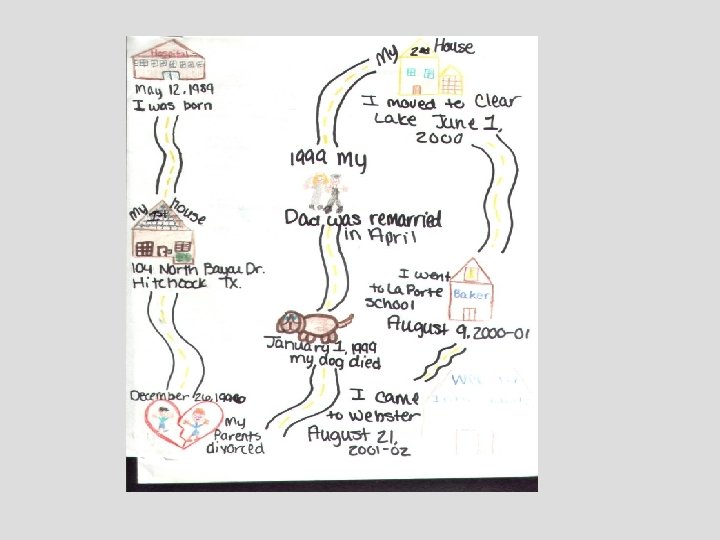 Hospital
May 12, 1989
I was born
My 1st House
104 North Bayou Dr.
Hitchcock Tx.
December 26, 1996
My
Parents
divorced
January 1, 1999
my dog died
1999 My
Dad was remarried
in April
My 2nd House
I moved to Clear
Lake June 1,
2000
I went
to La Porte
School
Baker
August 9, 2000-01
I came
to Webster
August 21,
2001-02